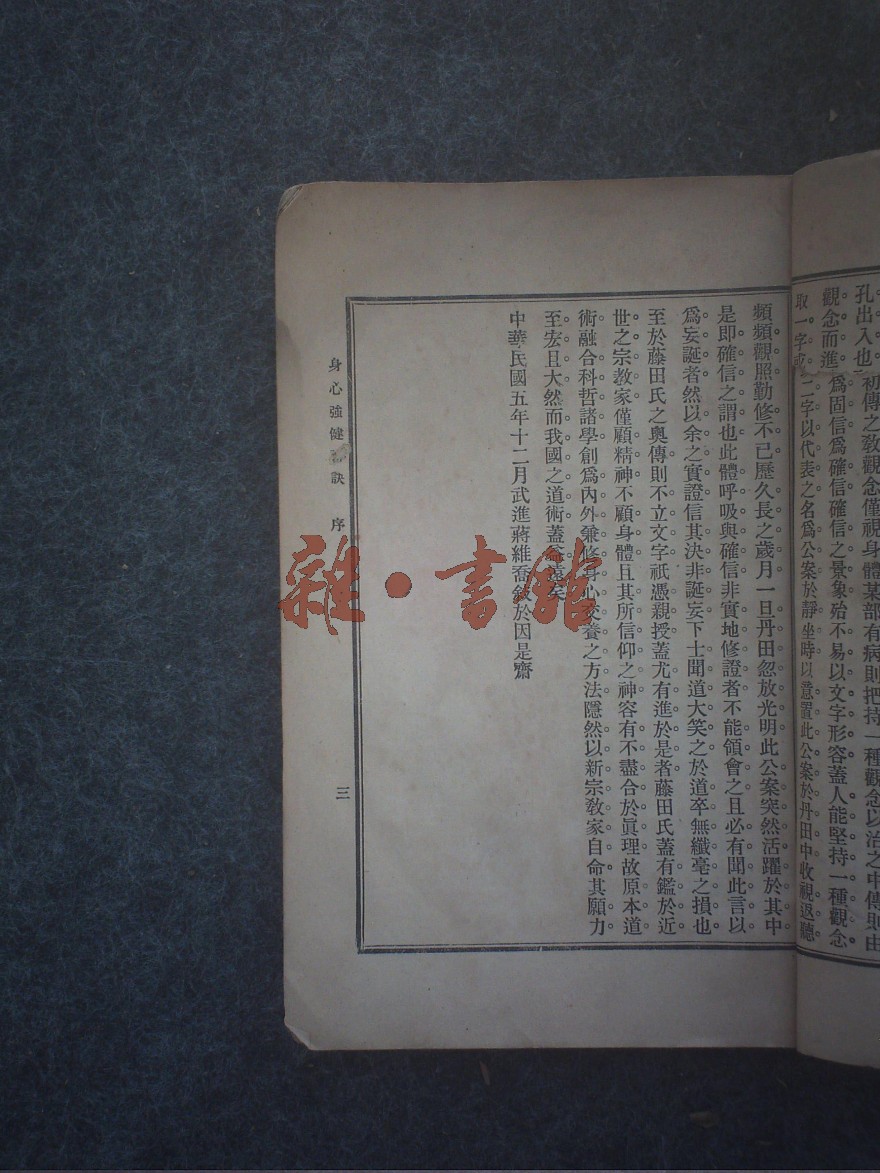 孔。出入也
初傳之敎觀念僅視身體某部有病則把持一種觀念以治之中傳則由
觀。念。而。進。
爲。固。信。爲。確。信。確。信。之。景。象。殆。不。易。以。文。字。形。容。蓋。人。能。堅。持。一。種。觀。念。
取。一。字。或。
二。字。以。代。表。之。名。爲。公。案。於。靜。坐。時。以。意。置。此。公。案。於。丹。田。中。收。視。返。聽。
頻。頻。觀。照。勤。修。不。已。歷。久。長。之。歲。月。一。旦。丹。田。忽。放。光。明。此。公。案。突。然。活。躍。於。其。中。
是。即。確。信。之。謂。也。此。體。呼。吸。與。確。信。非。實。地。修。證。者。不。能。領。會。之。且。必。有。聞。此。言。以。
爲。妄。誕。者。然。以。余。之。實。證。信。其。決。非。誕。妄。下。士。聞。道。大。笑。之。於。道。卒。無。纖。毫。之。損。也。
至於藤田氏之奧傳則不立文字祇憑親授蓋尤有進於是者藤田氏蓋有鑑於近
世之宗敎家僅顧精神不顧身體且其所信仰之神容有不盡合於眞理故原本道
術融合科哲諸學創爲內外兼修身心交養之方法隱然以新宗敎家自命其願力
至宏且大然而我國之道術蓋益遠矣
中華民國五年十二月武進蔣維喬敘於因是齋
身心強健祕訣 序
三
雜·書館